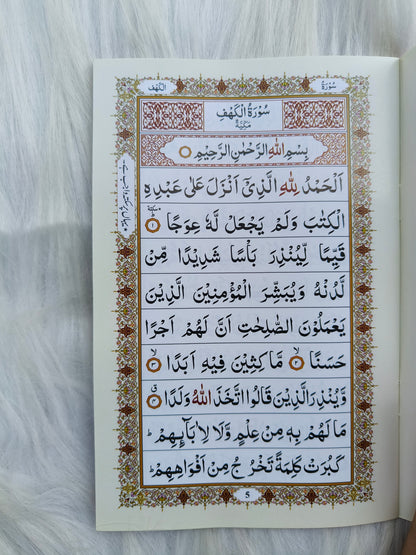 سُوْرَةُ
اَلْكَهْف
سُوْرَةُ الْكَهْفِ
مَكِّيَّةٌ
بِسْمِ اللّٰهِ الرَّحْمٰنِ الرَّحِيْمِ
اَلْحَمْدُ لِلّٰهِ الَّذِيْٓ اَنْزَلَ عَلٰى عَبْدِهِ
الْكِتٰبَ وَلَمْ يَجْعَلْ لَّهٗ عِوَجًا ۱
قَيِّمًا لِّيُنْذِرَ بَاْسًا شَدِيْدًا مِّنْ
لَّدُنْهُ وَيُبَشِّرَ الْمُؤْمِنِيْنَ الَّذِيْنَ
يَعْمَلُوْنَ الصّٰلِحٰتِ اَنَّ لَهُمْ اَجْرًا
حَسَنًا ۲ مَّاكِثِيْنَ فِيْهِ اَبَدًا ۳
وَّيُنْذِرَ الَّذِيْنَ قَالُوا اتَّخَذَ اللّٰهُ وَلَدًا ۴
مَا لَهُمْ بِهٖ مِنْ عِلْمٍ وَّلَا لِاٰبَآىِٕهِمْ ؕ
كَبُرَتْ كَلِمَةً تَخْرُجُ مِنْ اَفْوَاهِهِمْ ؕ
5